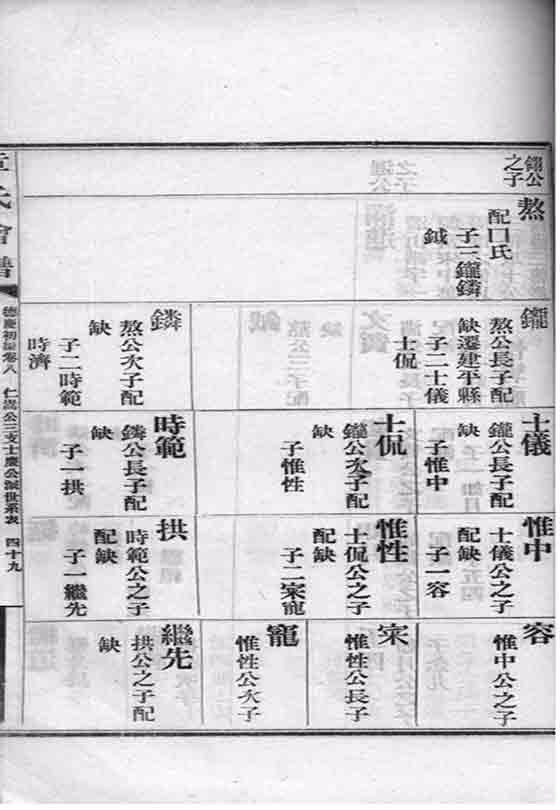 公
之子
熬
配口氏
子三鑨鏻
鉞
鑨
熬公長子配
缺遷建平縣
子二士儀
士侃
鏻
熬公次子配
缺
子二時範
時濟
士儀
鑨公長子配
缺
子惟中
士侃
鑨公次子配
缺
子惟性
時範
鏻公長子配
缺
子一拱
惟中
士儀公之子
配缺
子一容
惟性
士侃公之子
配缺
子二寀寵
拱
時範公之子
配缺
子一繼先
容
惟中公之子
寀
惟性公長子
寵
惟性公次子
繼先
拱公之子配
缺
章氏會譜
德慶初編卷八 仁嵩公三支士慶公派世系表 四十九